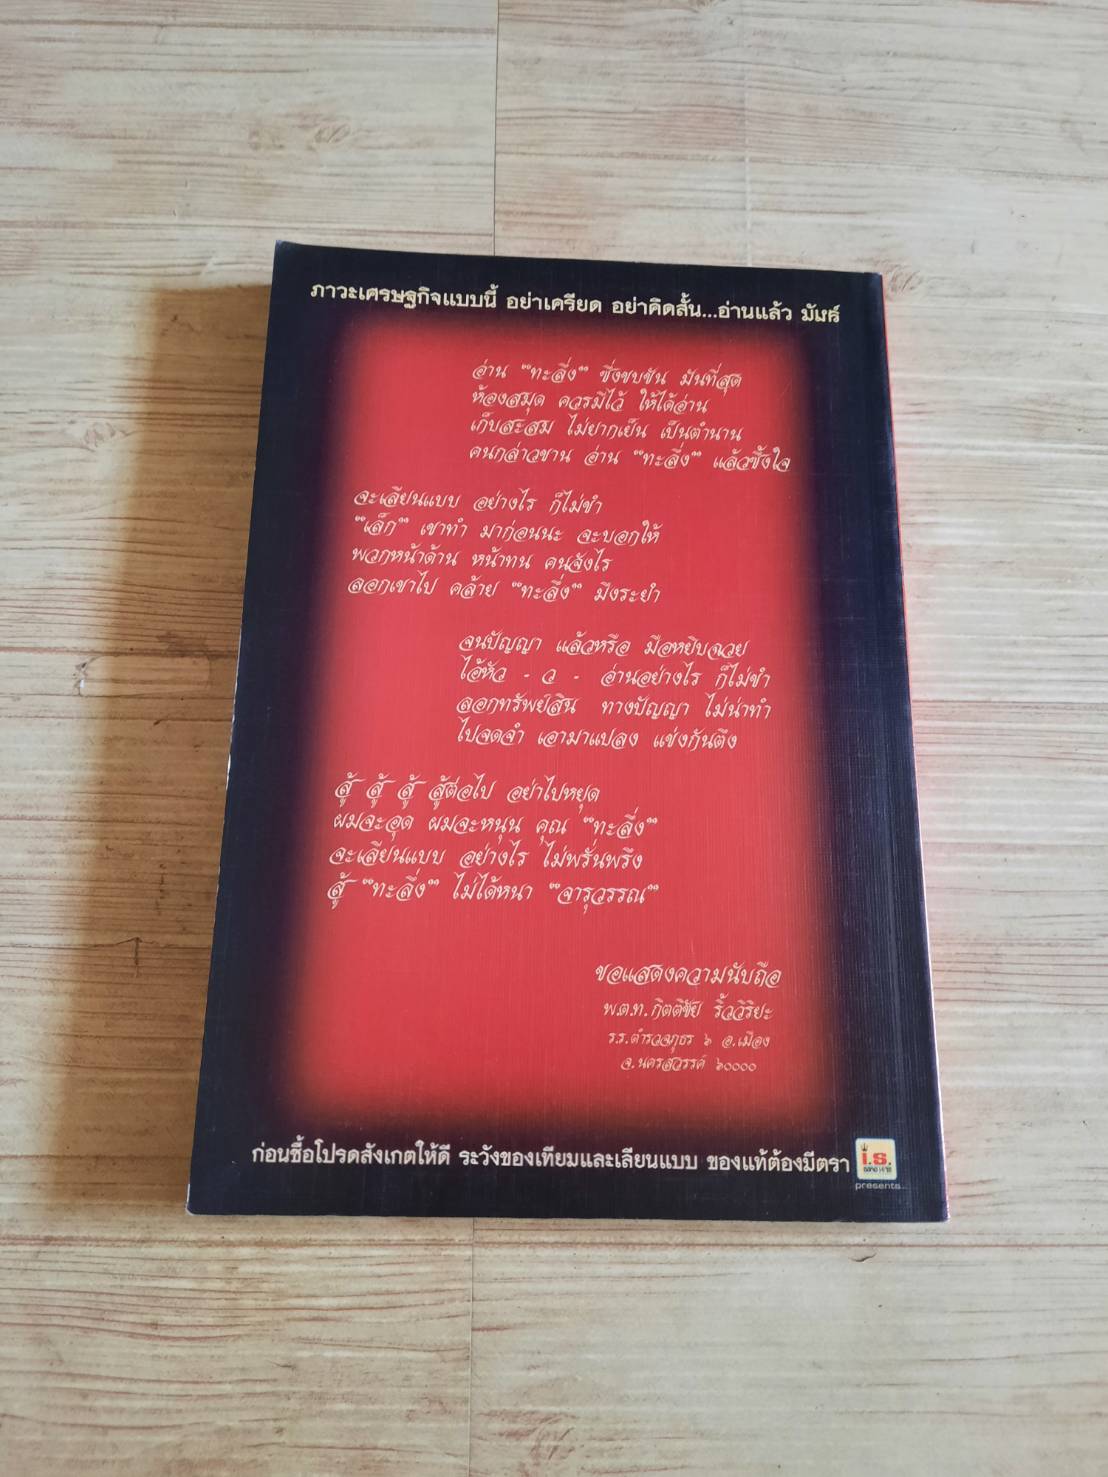 ภาวะเศรษฐกิจแบบนี้ อย่าเครียด อย่าคิดสั้น...อ่านแล้ว มัน
อ่าน "ทะลึ่ง" ซึ่งขบขัน มันที่สุด
ห้องสมุด ควรมีไว้ ให้ได้อ่าน
เก็บสะสม ไม่ยากเย็น เป็นตำนาน
คนกล่าวขาน อ่าน "ทะลึ่ง" แล้วซึ้งใจ
จะเลียนแบบ อย่างไร ก็ไม่ขำ
"เล็ก" เขาทำ มาก่อนนะ จะบอกให้
พวกหน้าด้าน หน้าทน คนจังไร
ลอกเขาไป คล้าย "ทะลึ่ง" มึงระยำ
จนปัญญา แล้วหรือ มือหยิบฉวย
ไอ้หัว - ว - อ่านอย่างไร ก็ไม่ขำ
ลอกทรัพย์สิน ทางปัญญา ไม่น่าทำ
ไปจดจำ เอามาแปลง แข่งกันตึง
สู้ สู้ สู้ สู้ต่อไป อย่าไปหยุด
ผมจะอุด ผมจะหนุน คุณ "ทะลึ่ง"
จะเลียนแบบ อย่างไร ไม่พรั่นพรึง
สู้ "ทะลึ่ง" ไม่ได้หนา "จารุวรรณ"
ขอแสดงความนับถือ
พ.ต.ท.กิตติชัย ริ้ววิริยะ
ร.ร.ตำรวจภูธร ๖ อ.เมือง
จ.นครสวรรค์ ๖๐๐๐๐
ก่อนซื้อโปรดสังเกตให้ดี ระวังของเทียมและเลียนแบบ ของแท้ต้องมีตรา
i.s.
presents...